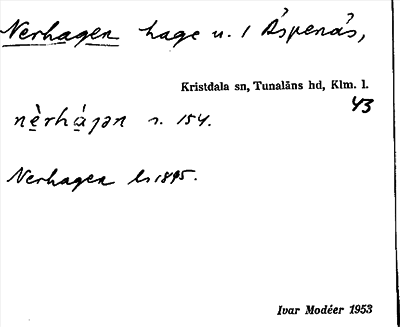 Nerhagen hage u. 1 Äspenäs,
Kristdala sn, Tunaläns hd, Klm. l.
43
nè̱rhá̱gən s. 154.
Nerhagen ls 1895.
Ivar Modéer 1953